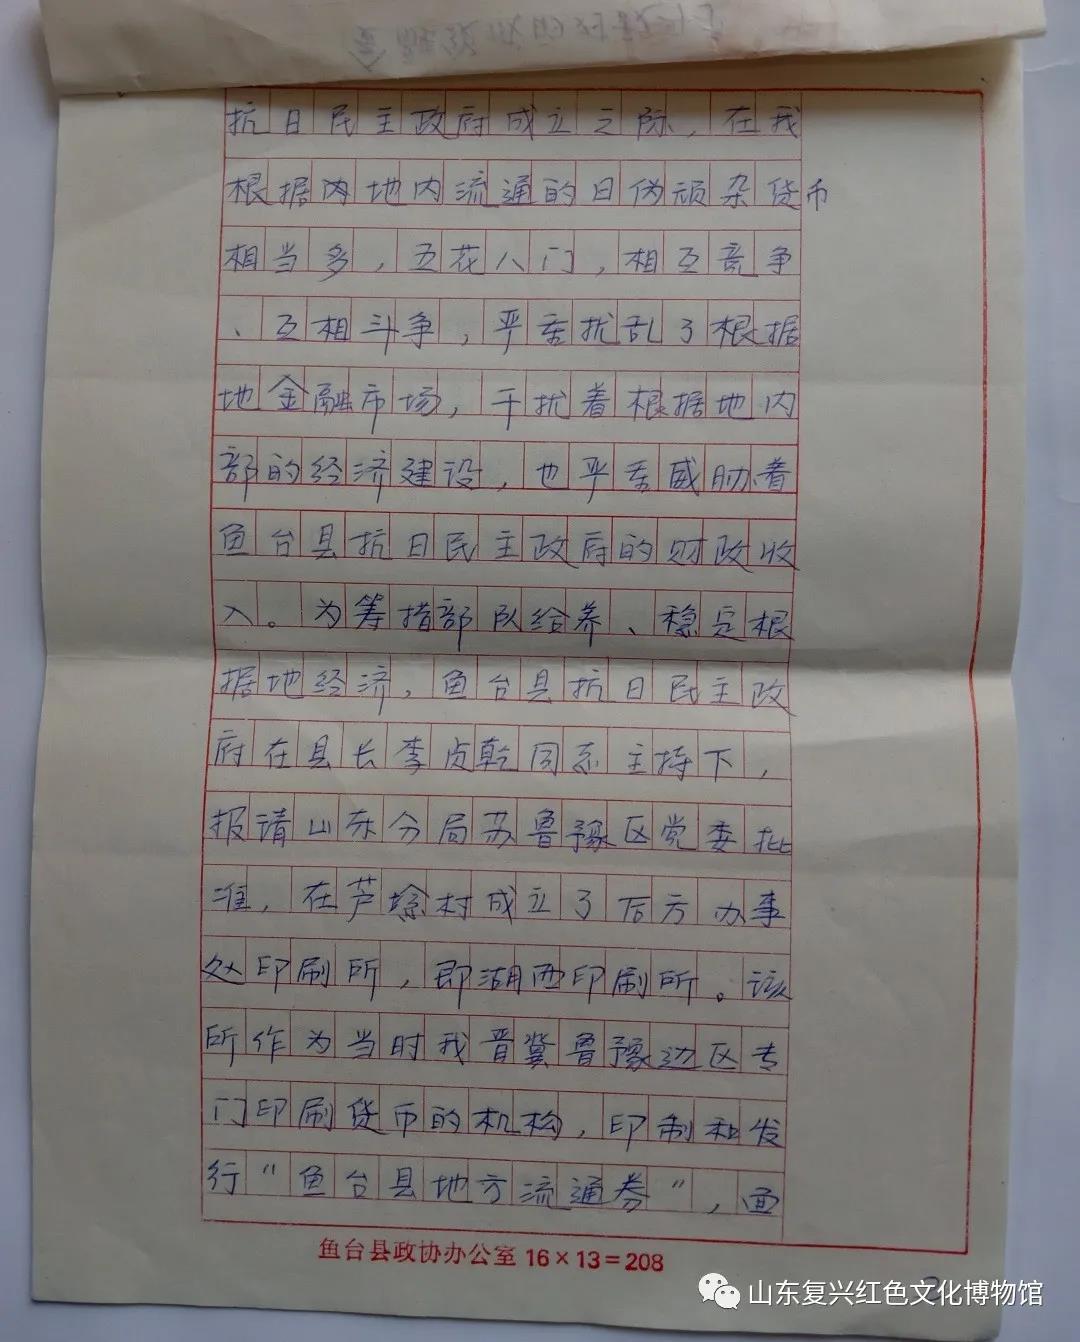 抗日民主政府成立之际，在我
根据内地内流通的日伪顽杂货币
相当多，五花八门，相互竞争
、互相斗争，严重扰乱了根据
地金融市场，干扰着根据地内
部的经济建设，也严重威胁着
鱼台县抗日民主政府的财政收
入。为筹措部队给养、稳定根
据地经济，鱼台县抗日民主政
府在县长李贞乾同志主持下，
报请山东分局苏鲁豫区党委批
准，在芦墕村成立了后方办事
处印刷所，即湖西印刷所。该
所作为当时我晋冀鲁豫边区专
门印刷货币的机构，印制和发
行“鱼台县地方流通券”，面
鱼台县政协办公室 16×13=208
山东复兴红色文化博物馆